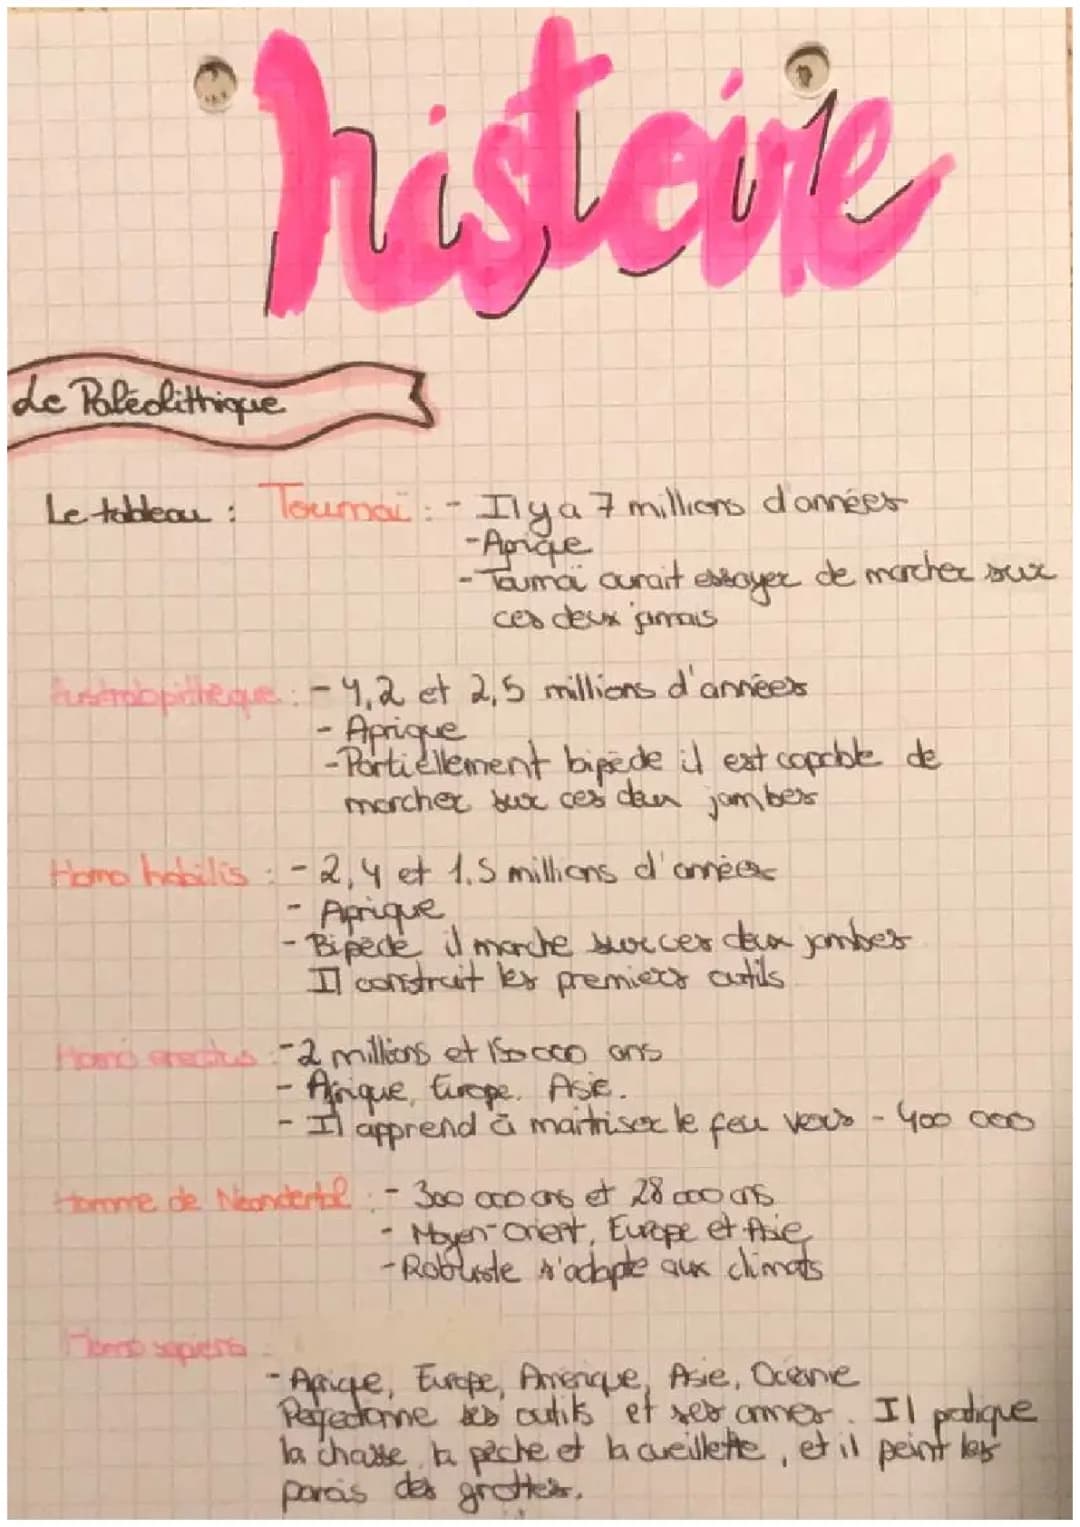 histoire
Le Paléolithique
Le tableau : Toumaï : - Il y a 7 millions d'années
- Afrique
- Toumaï aurait essayer de marcher sur
ces deux jamais
Australopithèque : - 4,2 et 2,5 millions d'années
- Afrique
- Partiellement bipède il est capable de
marcher sur ces deux jambes
Homo habilis : - 2,4 et 1.5 millions d'années
- Afrique
- Bipède il marche sur ces deux jambes
Il construit les premiers outils
Homo erectus : - 2 millions et 150 000 ans
- Afrique, Europe. Asie.
- Il apprend à maitriser le feu vers - 400 000
Homme de Neandertal : - 300 000 ans et 28 000 ans
- Moyen-Orient, Europe et Asie
- Robuste s'adapte aux climats
Homo sapiens :
- Afrique, Europe, Amérique, Asie, Océanie
ses outils et ses armes. Il pratique
la chasse, la pêche et la cueillette, et il peint les
parois des grottes.